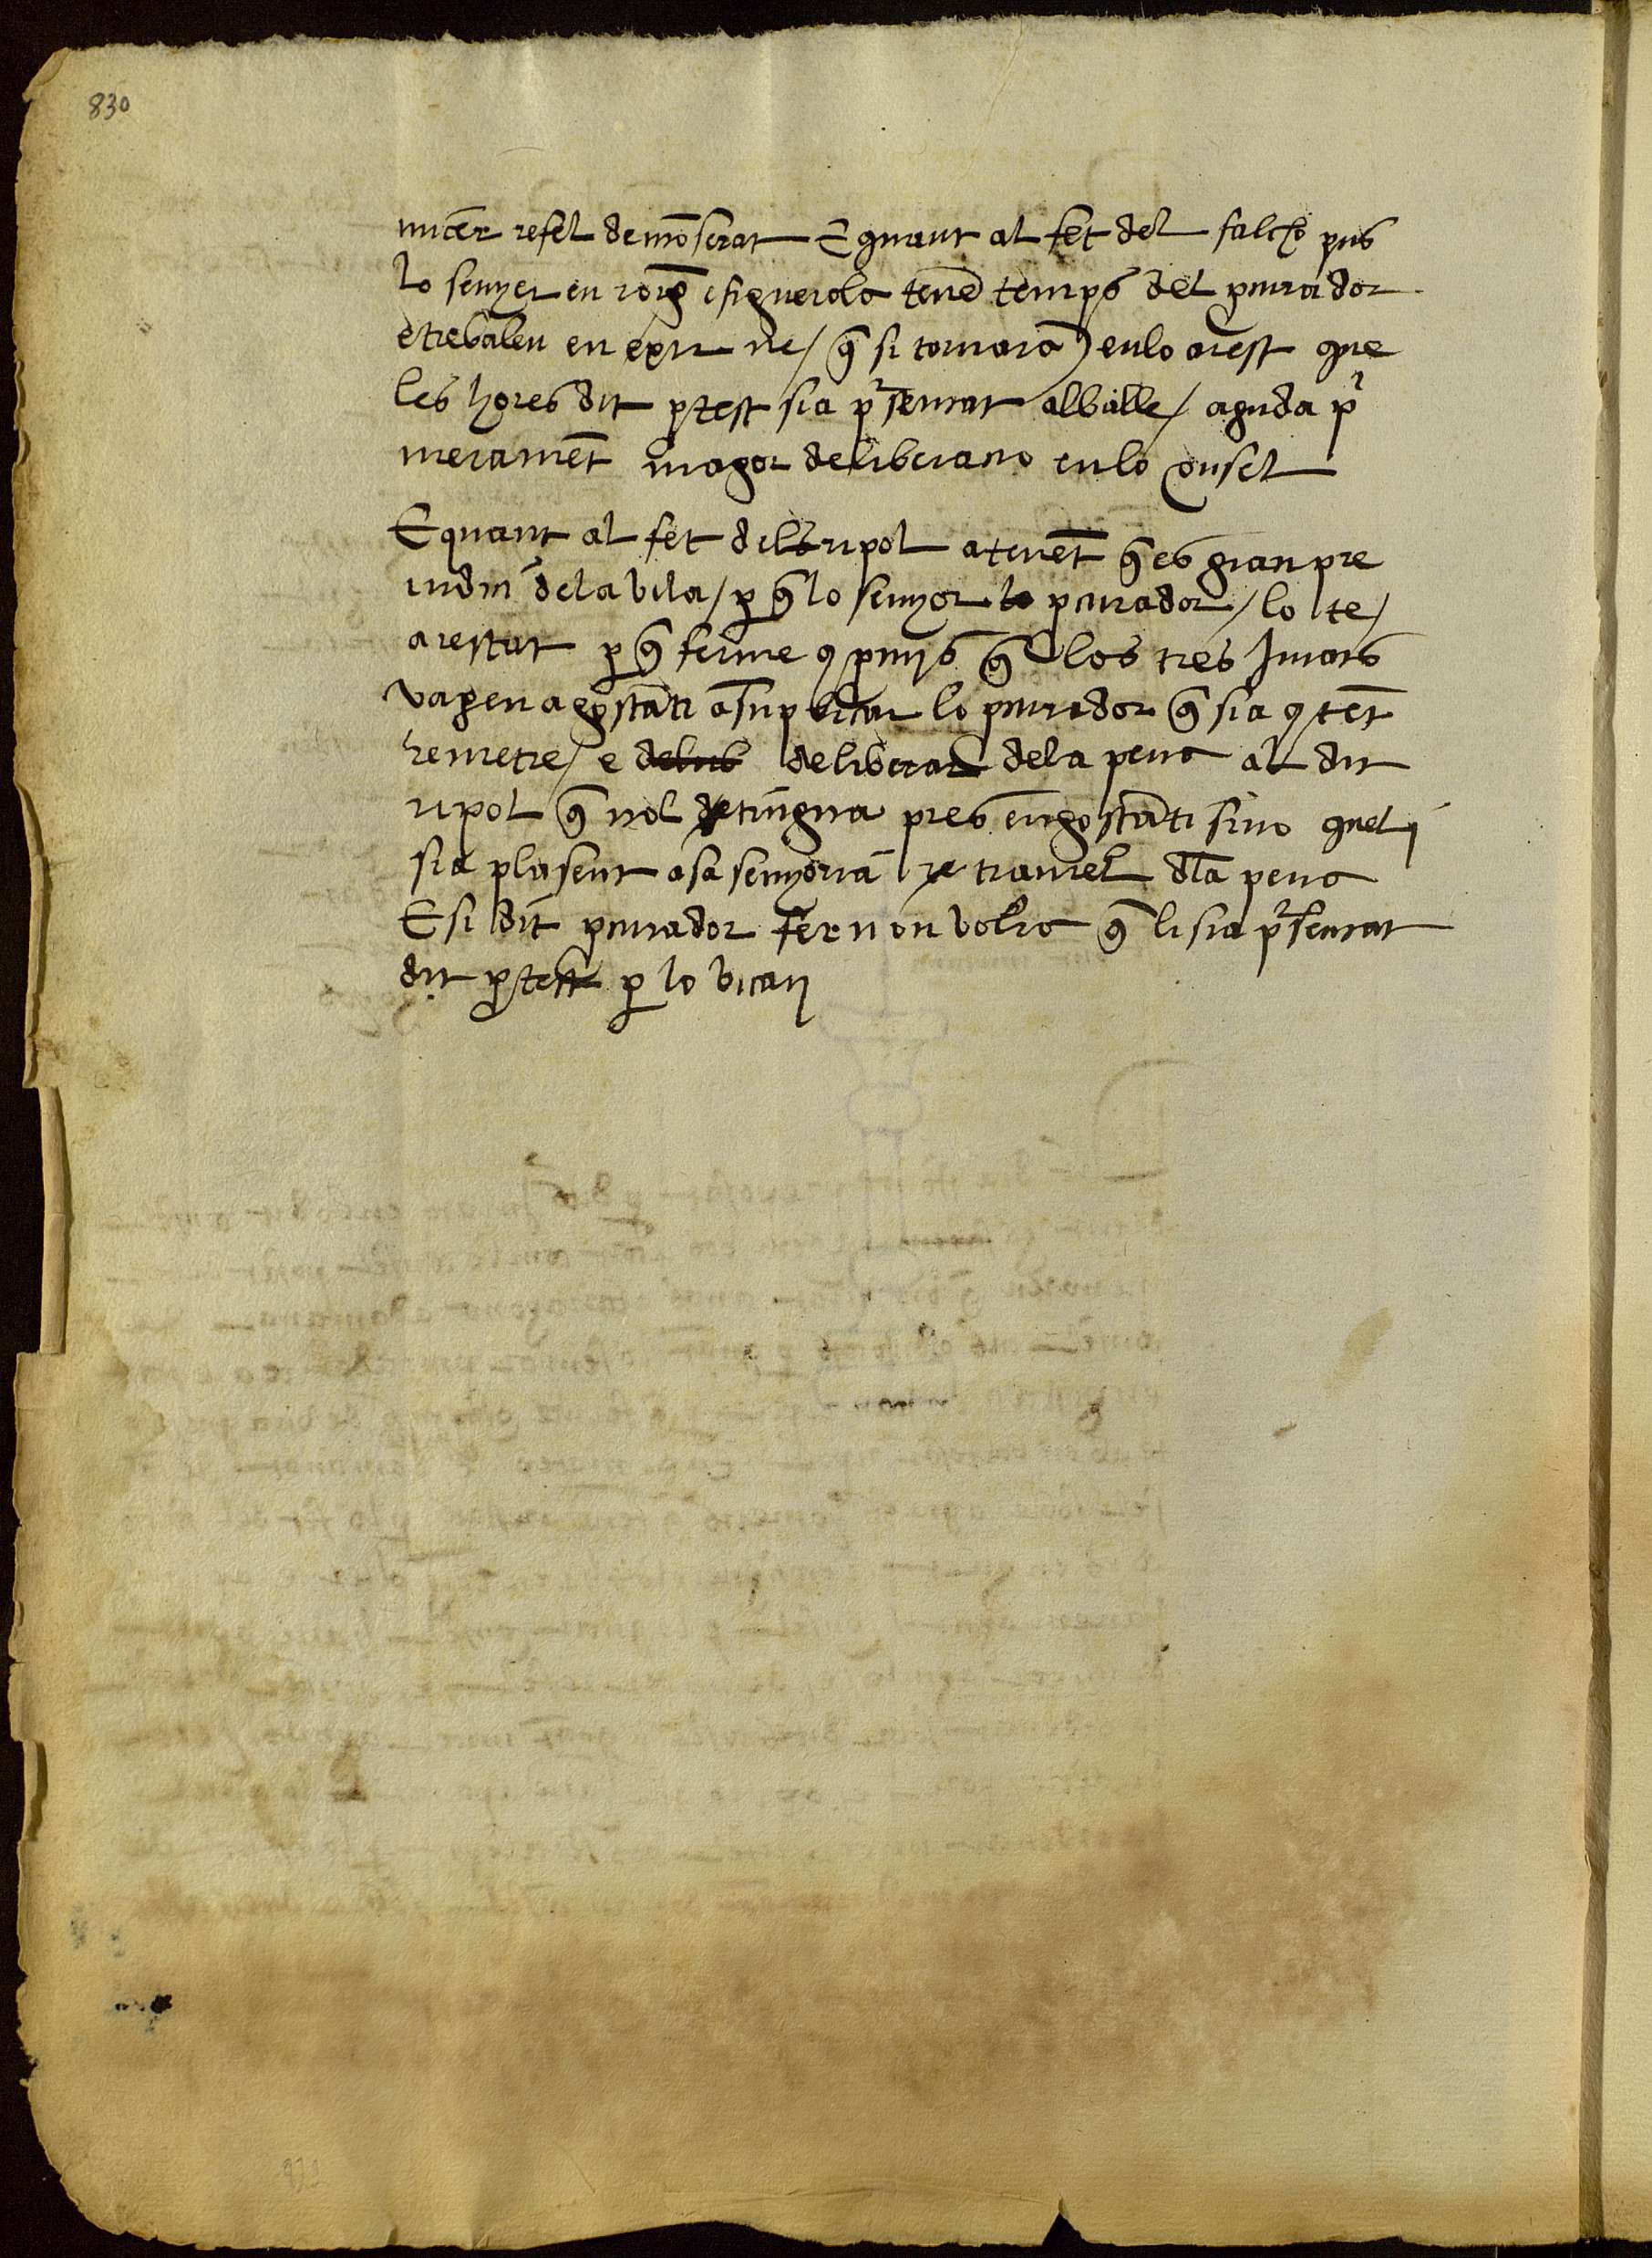 830
micer refel demōserat E quant al fet del falcho pus
lo senyer en roig e figuerola tenē temps del pcurador
e trebalen en exir ne / q̄ si tornarā en lo arest que
les hores dit ptest sia psentat al balle / aguda p
merament magor deliberacio en lo consel
E quant al fet dels ripol atenēt q̄ es gran pre
iudici dela vila / per q̄ lo senyor lo pcurador / lo te /
arestat per q̄ ferme 9 pmis q̄ los tres Jurats
vagen a gostāti a suplicar lo pcurador q̄ sia 9tēt
remetre / e delib deliberar dela pena al dit
ripol q̄ nol detingua pres en gostāti sino quel
sia plasent a sa senyoria tramel dla pena
E si dit pcurador fer non volra q̄ li sia psentat
dit ptest per lo vicari